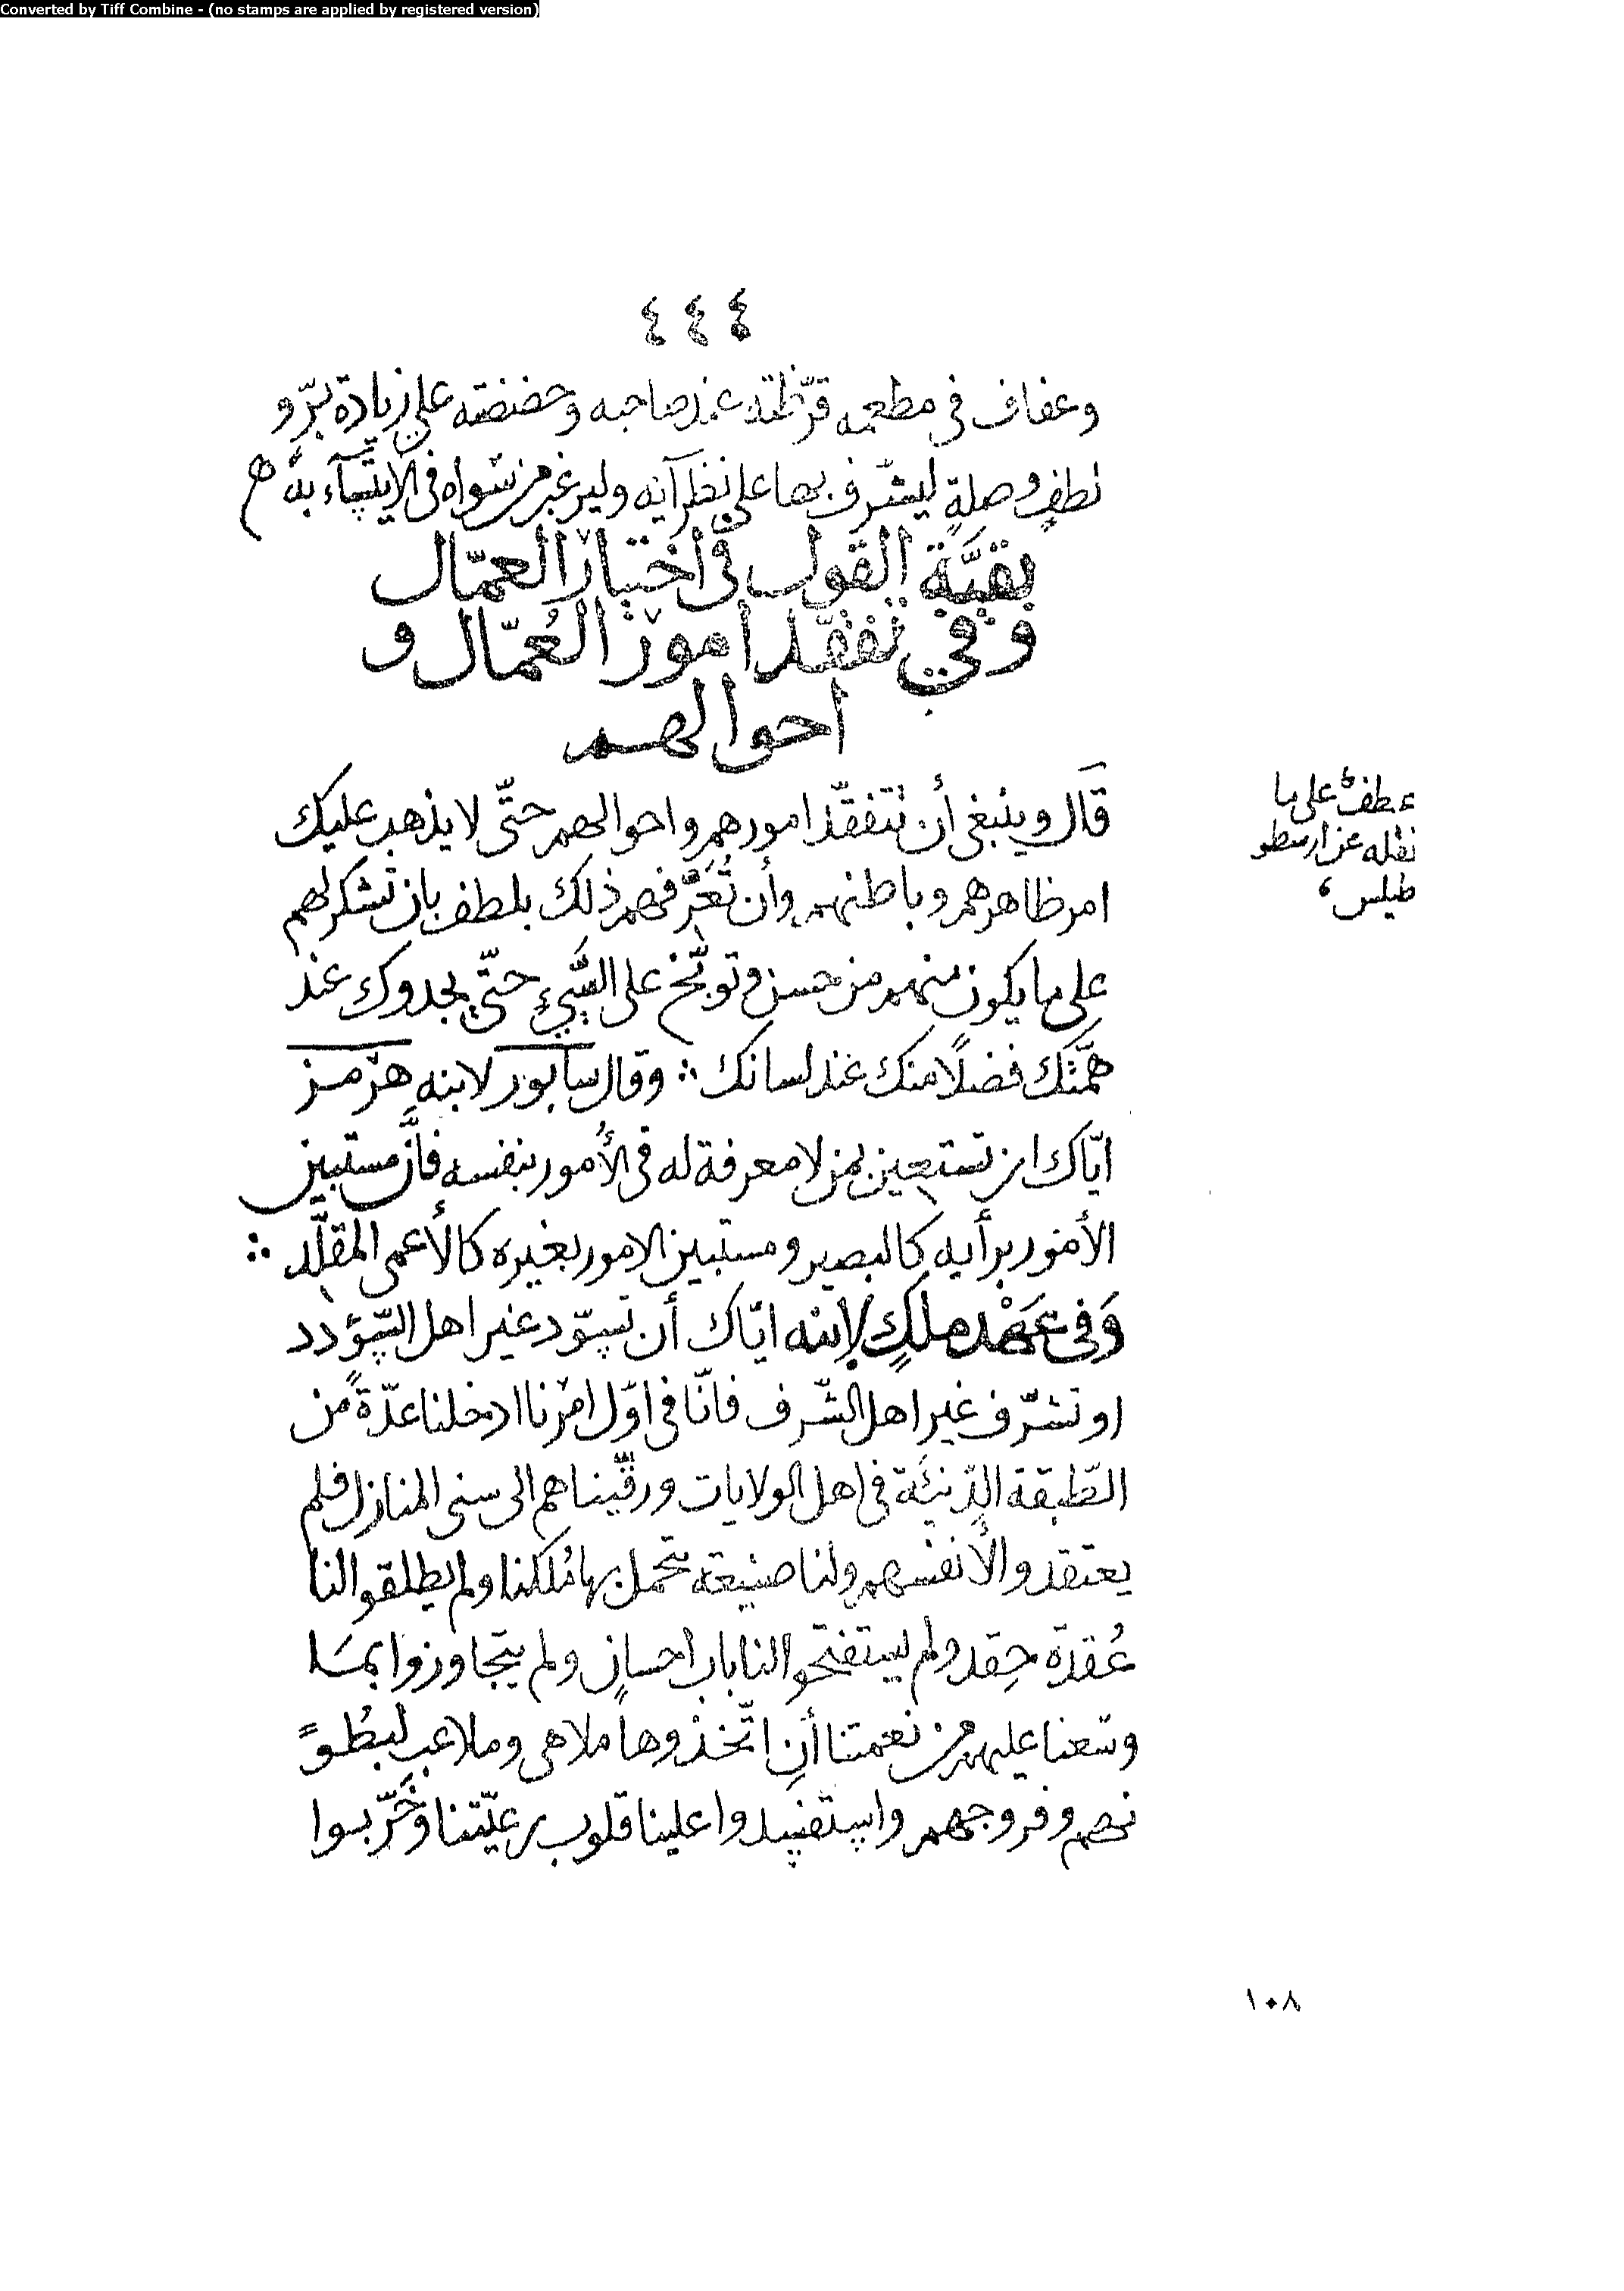 Converted by Tiff Combine - (no stamps are applied by registered version)
٤٤٤
وعفاف في مطعمه قرّظته عند صاحبه وحضضته على زيادة برّ و
لطف وصلةٍ ليشرف بها على نظرآئه وليرغب من سواه في الايتساء به
بقيّة القول في اختيار العمّال
وفي تفقّد امور العُمّال و
احوالهم
قال وينبغي أن تتفقّد امورهم واحوالهم حتّى لا يذهب عليك
امر ظاهرهم وباطنهم وأن تُعَرِّفهم ذلك بلطف بان تشكر لهم
على ما يكون منهم من حسن وتوبّخ على السّيّئ حتّى يجدوك عند
همّتك فضلًا منك عند لسانك ∴ وقال سابور لابنه هرمز
ايّاك ان تستعين بمن لا معرفة له في الأمور بنفسه فانّ مستبين
الأمور برأيه كالبصير ومستبين الامور بغيره كالأعمى المقلّد ∴
وَفي عَهْد ملكٍ لابنه ايّاك أن تسوّد غير اهل السّؤدد
او تشرّف غير اهل الشّرف فانّا في اوّل امرنا ادخلنا عدّةً من
الطّبقة الدّنيّة في اهل الولايات ورقّيناهم الى سنى المنازل فلم
يعتقدوا لأنفسهم ولنا صنيعة تجمل بها مُلكنا ولم يطلقوا لنا
عُقدَة حِقد ولم يستفتحوا لنا باب احسان ولم يتجاوزوا بمَا
وسّعنا عليهم من نعمتنا أن اتّخذوها ملاهى وملاعب لبُطو
نهم وفروجهم واستفسدوا علينا قلوب رعيّتنا وخَرّبوا
عطف على ما
نقله عن ارسطو
طيلس
١٠٨